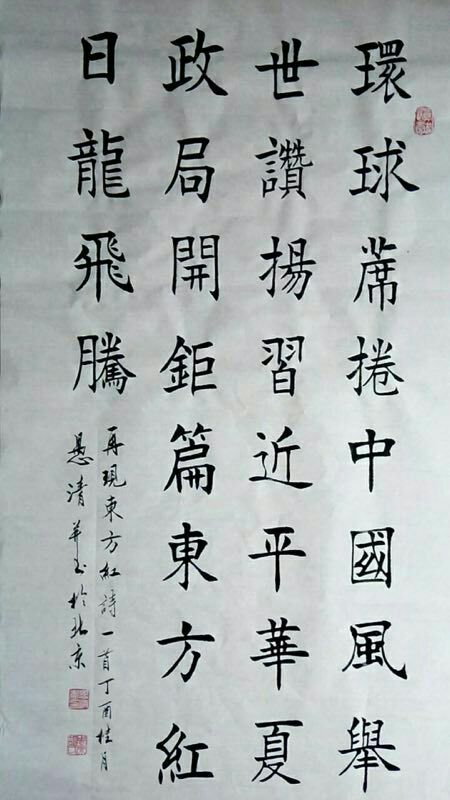 環球蓆捲中國風舉
世讚揚習近平華夏
政局開鉅篇東方紅
日龍飛騰
再現東方紅詩一首丁酉桂月
愚清華书於北京